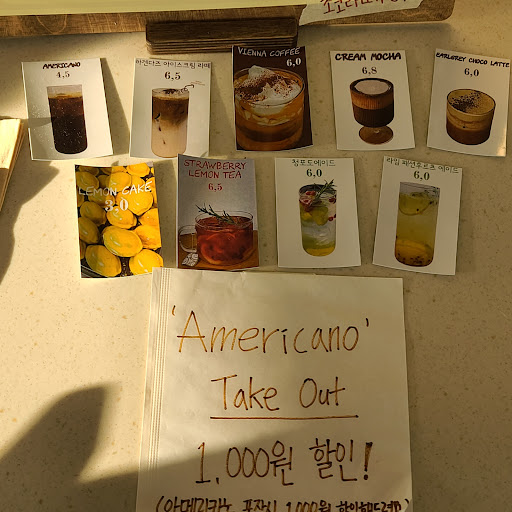 AMERICANO
4,5
하겐다즈 아이스크림 라떼
6,5
VIENNA COFFEE
6,0
CREAM MOCHA
6,8
EARLGREY CHOCO LATTE
6,0
LEMON CAKE
3,0
STRAWBERRY
LEMON TEA
6,5
청포도에이드
6,0
라임 패션후르츠 에이드
6,0
'Americano'
Take Out
1,000원 할인!
(아메리카노 포장시 1,000원 할인해드려요)